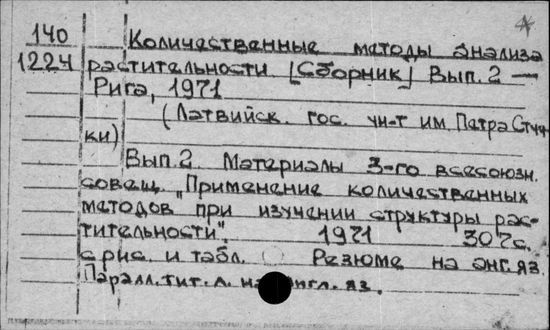 140 Количественные методы анализа
1224 растительности [Сборник] Вып. 2 —
Рига, 1971
(Латвийск. гос. ун-т им. Петра Стуч-
ки)
Вып. 2. Материалы 3-го всесоюзн.
совещ. „Применение количественных
методов при изучении структуры рас-
тительности". 1971 307с.
с рис. и табл. Резюме на англ. яз.
Паралл. тит. л. на англ. яз.